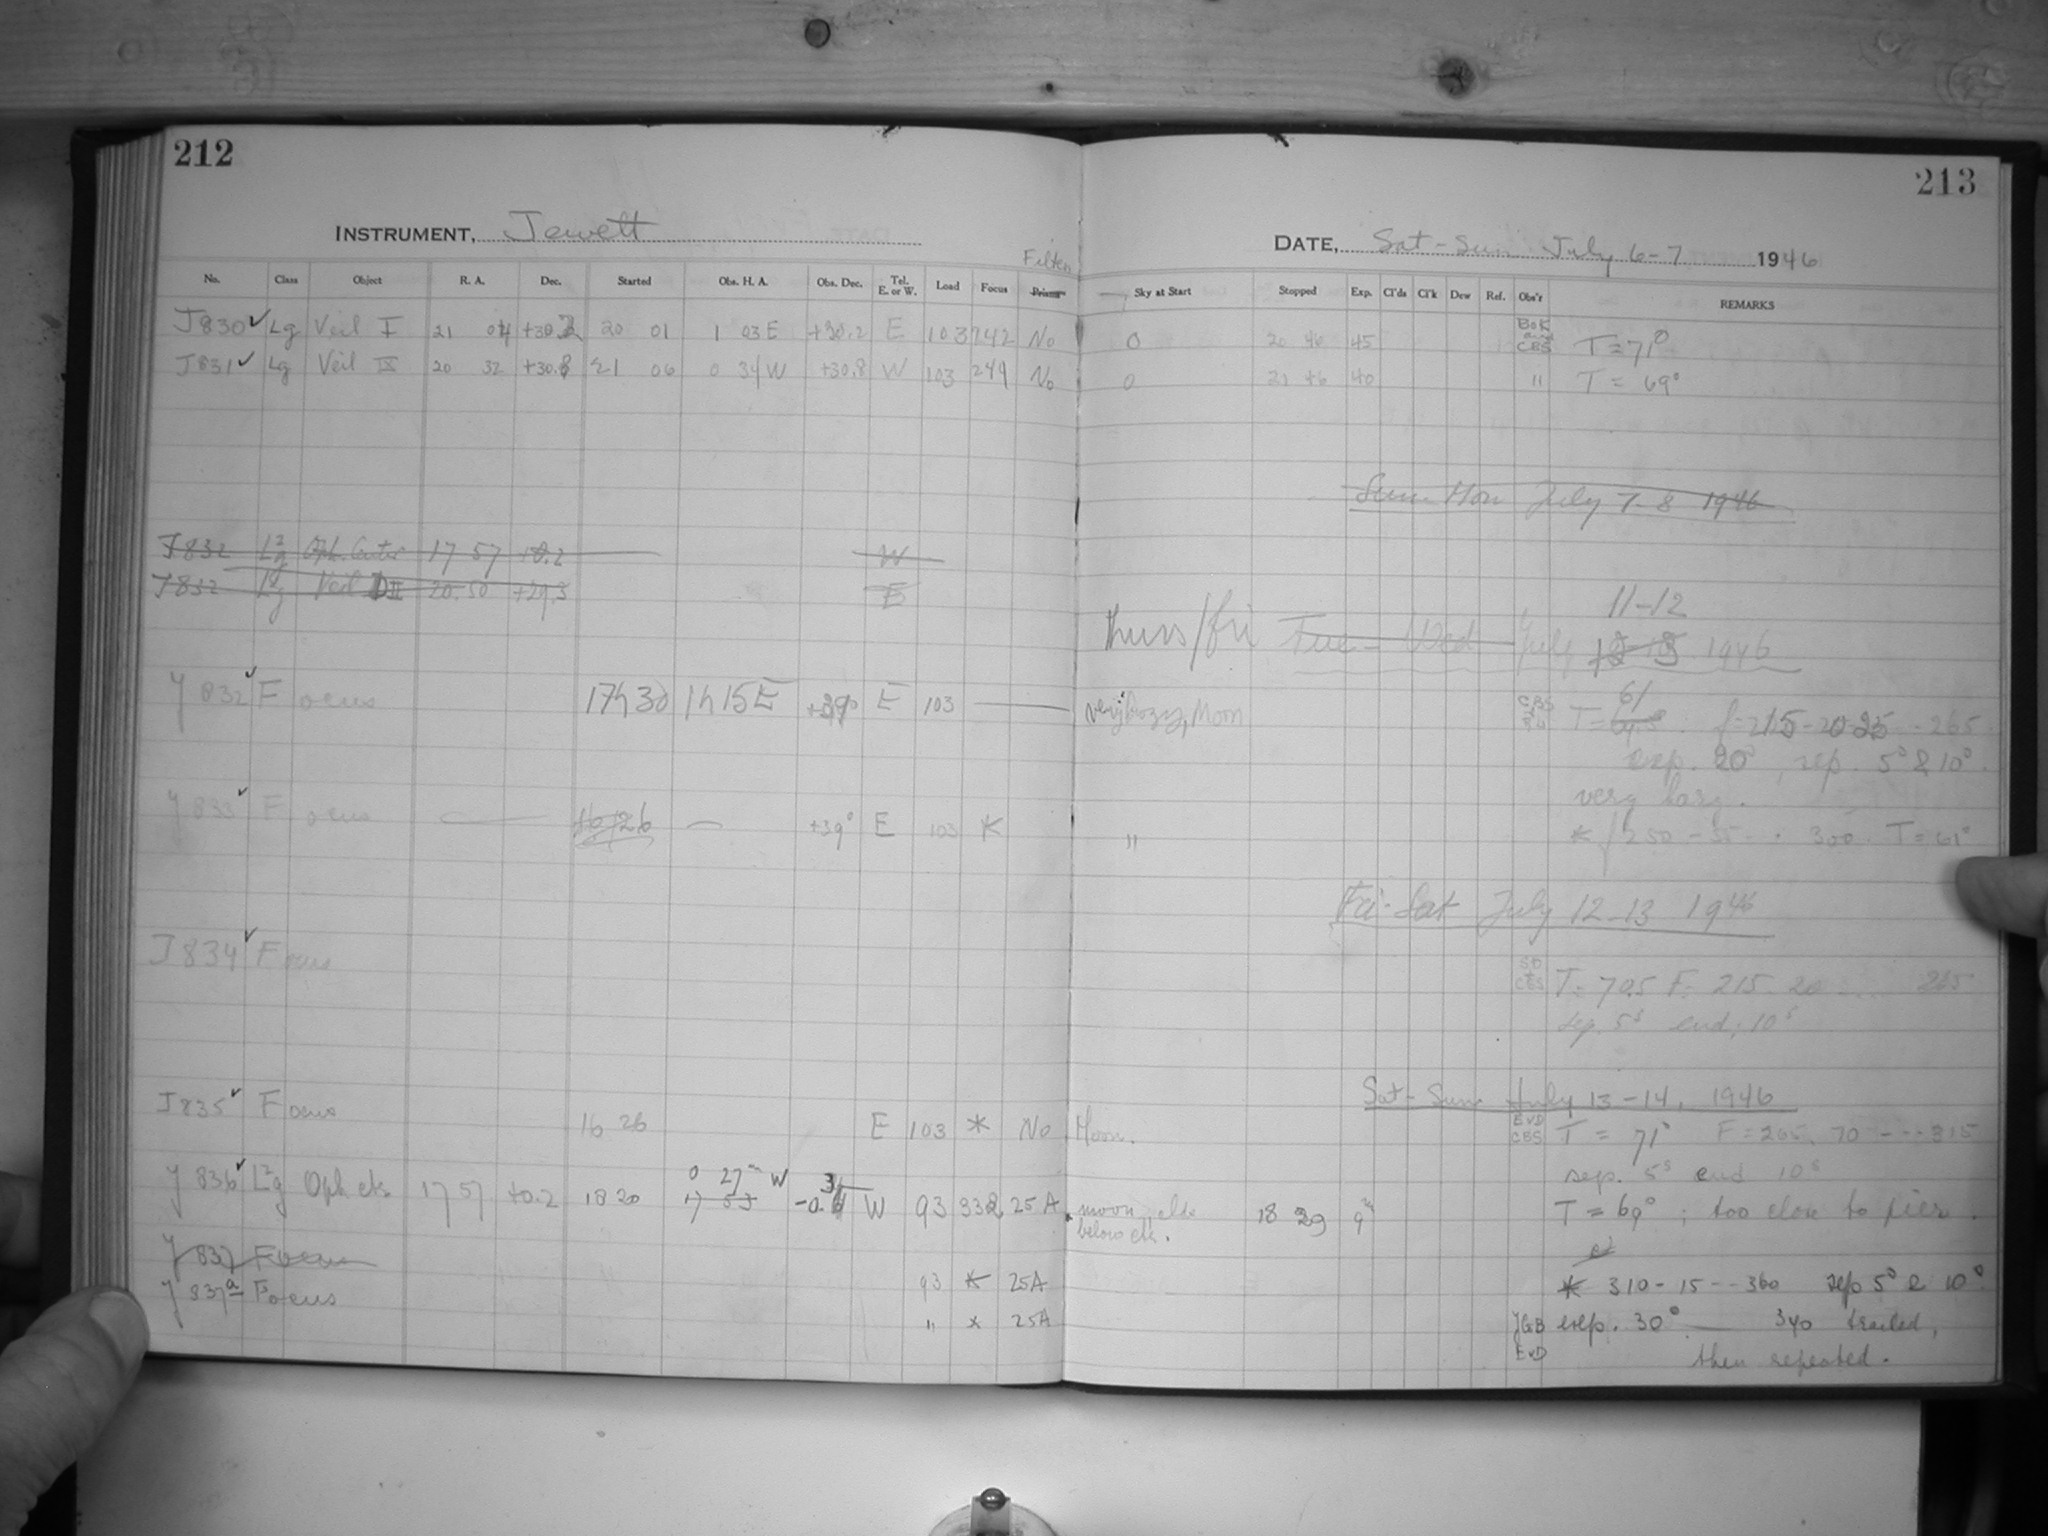 212
INSTRUMENT, Jewett
Filter
No. Class Object R. A. Dec. Started Obs. H. A. Obs. Dec. Tel. E. or W. Load Focus Prism
J830 ✓ Lg Veil I 21 04 +30.2 20 01 1 03 E +30.2 E 103 242 No
J831 ✓ Lg Veil IX 20 32 +30.8 21 06 0 34 W +30.8 W 103 249 No
J832 L²g Oph. Center 17 57 +0.2 W
J832 Lg Veil III 20 50 +29.3 E
J 832 ✓ Focus 17h30 1h15E +39° E 103
J 833 ✓ Focus 16 26 +39° E 103 *
J834 ✓ Focus
J835 ✓ Focus 16 26 E 103 * No
J 836 ✓ L²g Oph ctr 17 57 +0.2 18 20 0 27ᵐ W W 93 332 25 A
J 837 Focus
J 837a Focus 93 * 25A
" * 25A
213
DATE, Sat - Sun July 6-7 1946
Sky at Start Stopped Exp. Cl'ds Cl'k Dew Ref. Obs'r REMARKS
0 20 46 45 BoK and CBS T = 71°
0 21 46 40 " T = 69°
Sun Mon July 7-8 1946
11-12
thurs/fri Tue - Wed July 1946
very hazy, Moon CBS T = 61 f = 215-20-25 -- 265
exp. 20ˢ, sep. 5ˢ & 10ˢ.
very hazy.
" * 250 - 55 -- 300. T = 61°
Fri - Sat July 12-13 1946
CBS T = 70.5 F = 215 20 ... 265
sep. 5ˢ end, 10ˢ
Sat - Sun July 13-14, 1946
Moon. EvD CBS T = 71° F = 265, 70 --- 315
sep. 5ˢ end 10ˢ
moon, else below ctr. 18 29 9ᵐ T = 69°; too close to pier.
* 310 - 15 -- 360 sep 5ˢ & 10ˢ
JGB exp. 30ˢ. 340 trailed,
EvD then repeated.